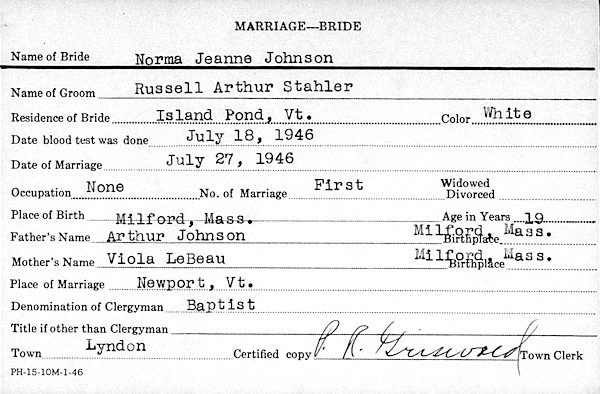 MARRIAGE—BRIDE
Name of Bride Norma Jeanne Johnson
Name of Groom Russell Arthur Stahler
Residence of Bride Island Pond, Vt. Color White
Date blood test was done July 18, 1946
Date of Marriage July 27, 1946
Occupation None No. of Marriage First Widowed Divorced
Place of Birth Milford, Mass. Age in Years 19
Father's Name Arthur Johnson Birthplace Milford, Mass.
Mother's Name Viola LeBeau Birthplace Milford, Mass.
Place of Marriage Newport, Vt.
Denomination of Clergyman Baptist
Title if other than Clergyman
Town Lyndon Certified copy P. R. Griswold Town Clerk
PH-15-10M-1-46